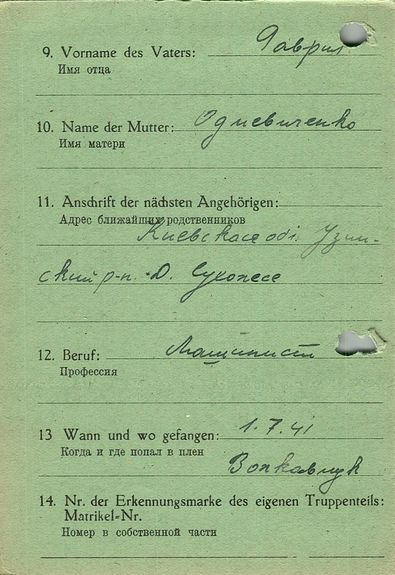 9. Vorname des Vaters: Гаврил
Имя отца
10. Name der Mutter:
Имя матери
11. Anschrift der nächsten Angehörigen:
Адрес ближайших родственников
Киевская обл. Узин-
ский р-н. Д. Сухолесе
12. Beruf: Машинист
Профессия
13 Wann und wo gefangen: 1.7.41
Когда и где попал в плен
14. Nr. der Erkennungsmarke des eigenen Truppenteils:
Matrikel-Nr.
Номер в собственной части